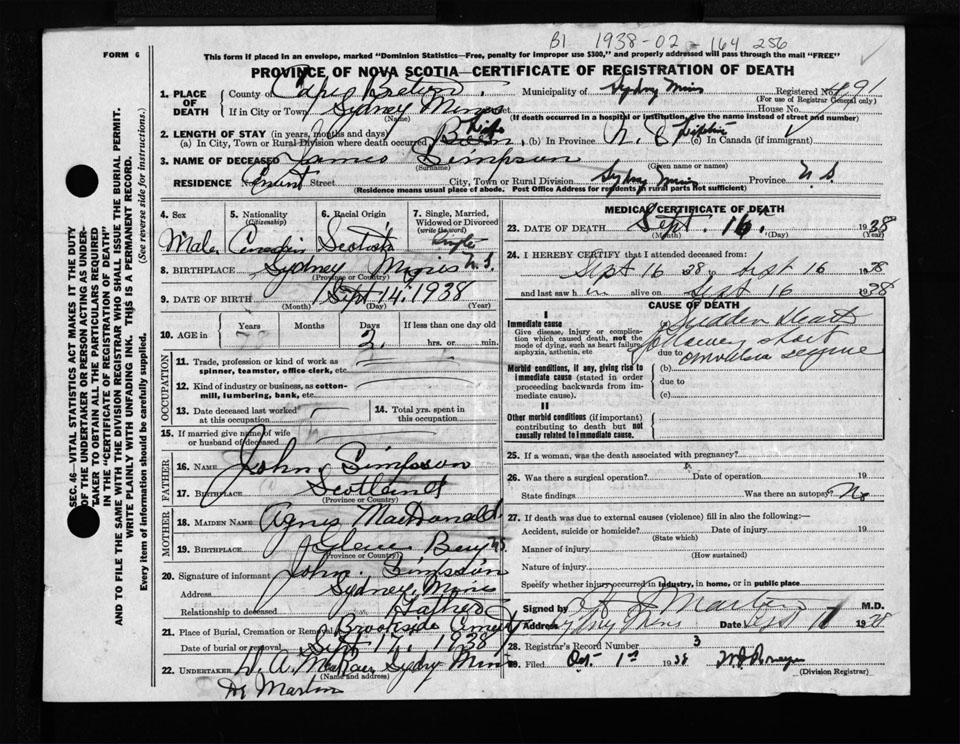 B1 1938-02-164 256
FORM 6
This form if placed in an envelope, marked "Dominion Statistics—Free, penalty for improper use $300," and properly addressed will pass through the mail "FREE"
PROVINCE OF NOVA SCOTIA—CERTIFICATE OF REGISTRATION OF DEATH
1. PLACE OF DEATH
County of Cape Breton
Municipality of Sydney Mines
Registered No.
(For use of Registrar General only)
If in City or Town Sydney Mines Street House No.
(Name) (If death occurred in a hospital or institution, give name instead of street and number)
2. LENGTH OF STAY (in years, months and days)
(a) In City, Town or Rural Division where death occurred Life (b) In Province N. S. Lifetime (c) In Canada (if immigrant)
3. NAME OF DECEASED James Simpson
(Surname) (Given name or names)
RESIDENCE No. Street City, Town or Rural Division Sydney Mines Province N. S.
(Residence means usual place of abode. Post Office Address for residents in rural parts not sufficient)
4. Sex
5. Nationality (Citizenship)
6. Racial Origin
7. Single, Married, Widowed or Divorced (write the word)
Male Canadian Scotish Single
8. BIRTHPLACE Sydney Mines N. S.
(Province or Country)
9. DATE OF BIRTH Sept 14, 1938
(Month) (Day) (Year)
10. AGE in Years Months Days If less than one day old
3 hrs. or min.
OCCUPATION
11. Trade, profession or kind of work as spinner, teamster, office clerk, etc.
12. Kind of industry or business, as cotton-mill, lumbering, bank, etc.
13. Date deceased last worked at this occupation
14. Total yrs. spent in this occupation
15. If married give name of wife or husband of deceased
FATHER
16. NAME John Simpson
17. BIRTHPLACE Scotland
(Province or Country)
MOTHER
18. MAIDEN NAME Agnes MacDonald
19. BIRTHPLACE Glace Bay N.S.
(Province or Country)
20. Signature of informant John Simpson
Address Sydney Mines
Relationship to deceased Father
21. Place of Burial, Cremation or Removal Brookside Cemetery
Date of burial or removal Sept 17, 1938
22. UNDERTAKER Sydney Mines
(Name and address)
Martin
MEDICAL CERTIFICATE OF DEATH
23. DATE OF DEATH Sept. 16, 1938
(Month) (Day) (Year)
24. I HEREBY CERTIFY that I attended deceased from:
Sept 16 38, Sept 16 1938
and last saw him alive on Sept 16 1938
CAUSE OF DEATH
I
Immediate cause
Give disease, injury or complication which caused death, not the mode of dying, such as heart failure, asphyxia, asthenia, etc
(a) Sudden death
following short
due to
Morbid conditions, if any, giving rise to immediate cause (stated in order proceeding backwards from immediate cause).
(b)
due to
(c)
II
Other morbid conditions (if important) contributing to death but not causally related to immediate cause.
25. If a woman, was the death associated with pregnancy?
26. Was there a surgical operation? Date of operation 19
State findings Was there an autopsy? No
27. If death was due to external causes (violence) fill in also the following:—
Accident, suicide or homicide? Date of injury 19
(State which)
Manner of injury
(How sustained)
Nature of injury
Specify whether injury occurred in industry, in home, or in public place
Signed by Martin M.D.
Address Sydney Mines Date Sept 1938
28. Registrar's Record Number 3
29. Filed Oct. 1st 1938
(Division Registrar)
SEC. 46—VITAL STATISTICS ACT MAKES IT THE DUTY
OF THE UNDERTAKER OR PERSON ACTING AS UNDER-
TAKER TO OBTAIN ALL THE PARTICULARS REQUIRED
IN THE "CERTIFICATE OF REGISTRATION OF DEATH"
AND TO FILE THE SAME WITH THE DIVISION REGISTRAR WHO SHALL ISSUE THE BURIAL PERMIT.
WRITE PLAINLY WITH UNFADING INK. THIS IS A PERMANENT RECORD.
Every item of information should be carefully supplied. (See reverse side for instructions.)